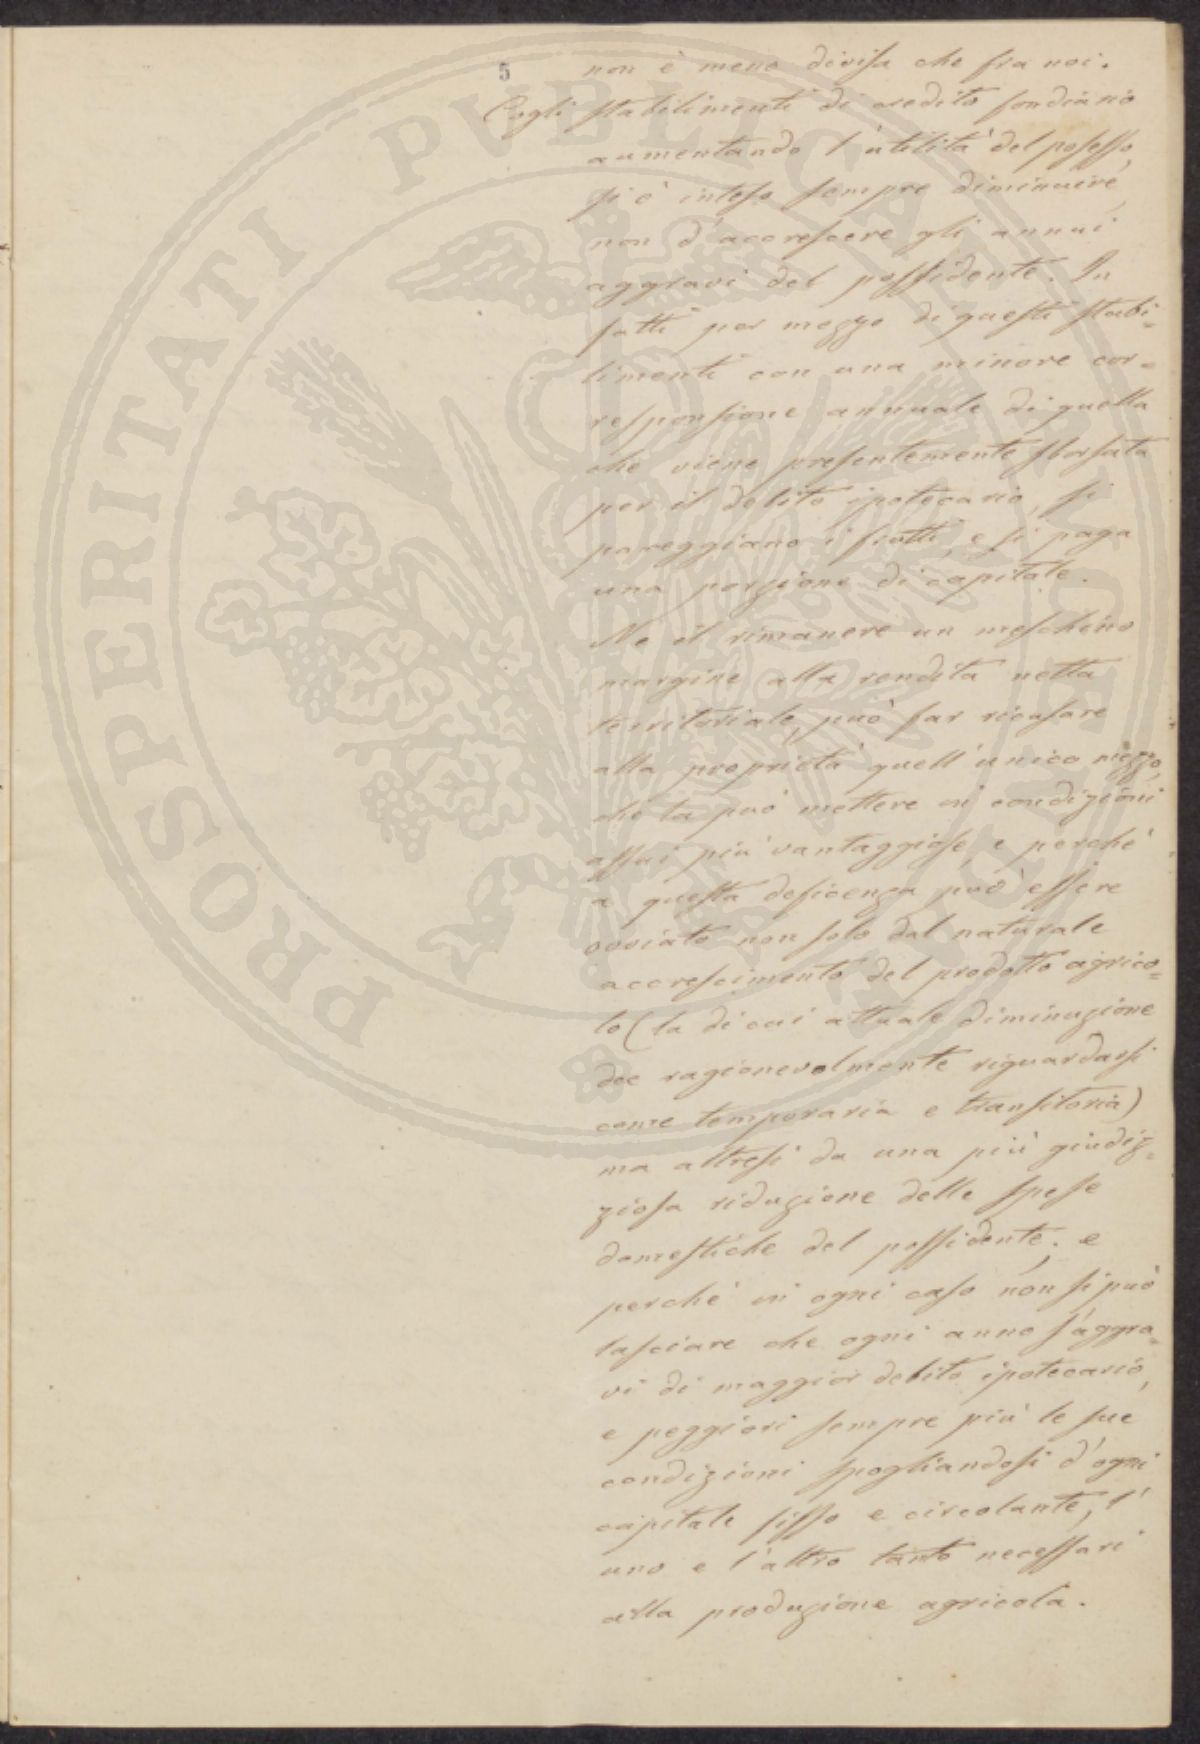 5
non è meno divisa che fra noi.
Cogli stabilimenti di credito fondiario
aumentando l'utilità del possesso,
si è inteso sempre diminuire,
non d'accrescere gli annui
aggravi del possidente. In
fatti per mezzo di questi stabi=
limenti con una minore cor=
responsione annuale di quella
che viene presentemente sborsata
per il debito ipotecario, si
pareggiano i frutti, e si paga
una porzione di capitale.
Nè il rimanere un meschino
margine alla rendita netta
territoriale, può far ricusare
alla proprietà quell'unico mezzo,
che la può mettere in condizioni
assai più vantaggiose, e perchè
a questa deficenza può essere
ovviato non solo dal naturale
accrescimento del prodotto agrico=
lo (la di cui attuale diminuzione
dee ragionevolmente riguardarsi
come temporaria e transitoria)
ma altresì da una più giudiz=
ziosa riduzione delle spese
domestiche del possidente; e
perchè in ogni caso non si può
lasciare che ogni anno s'aggra=
vi di maggior debito ipotecario,
e peggiori sempre più le sue
condizioni spogliandosi d'ogni
capitale fisso e circolante, l'
uno e l'altro tanto necessari
alla produzione agricola.
PROSPERITATI PUBLICAE AUGENDAE